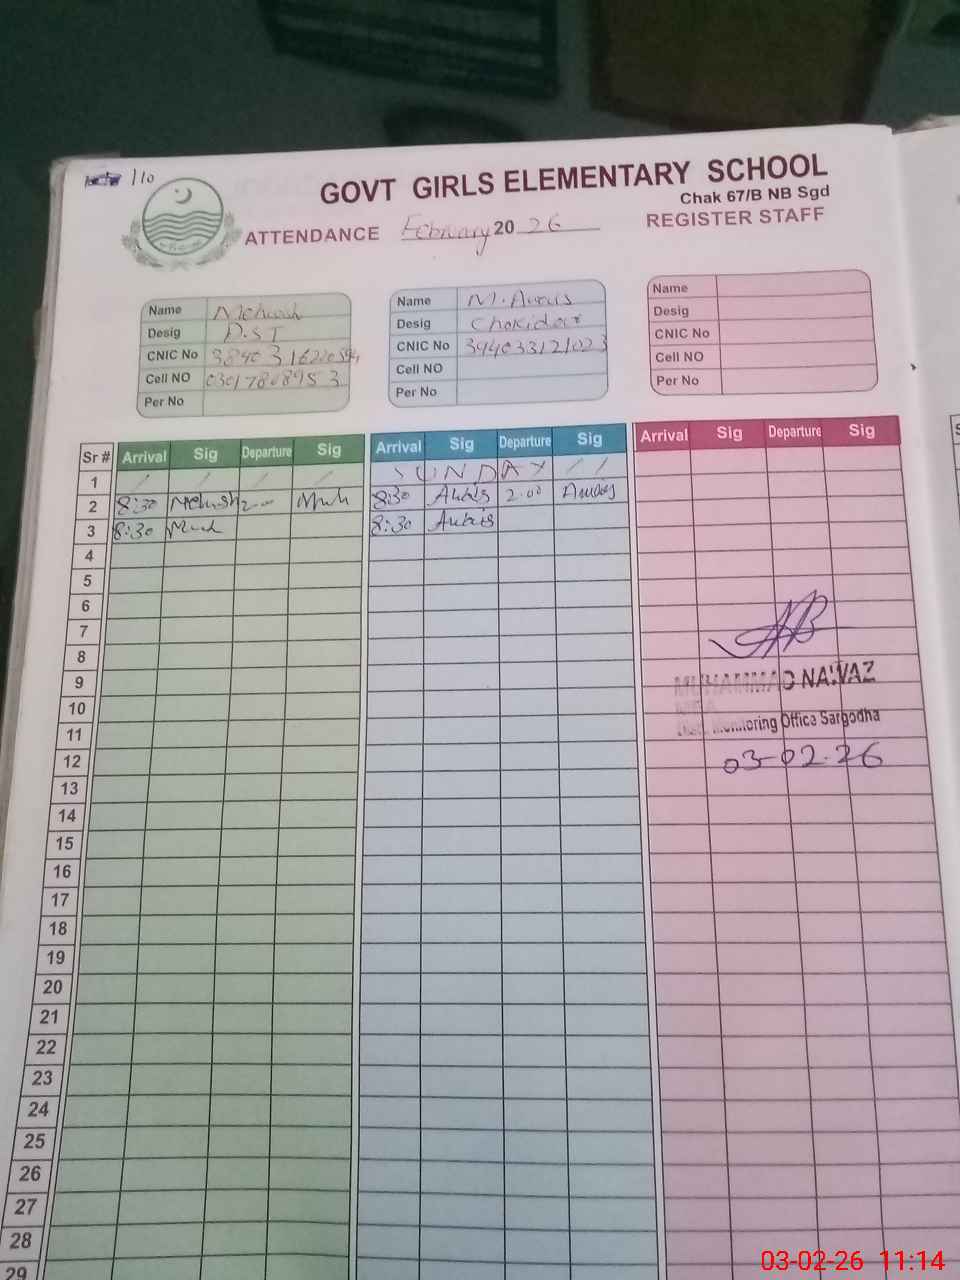 110
GOVT GIRLS ELEMENTARY SCHOOL
Chak 67/B NB Sgd
ATTENDANCE February 2026 REGISTER STAFF
Name Mehwish
Desig P.S.T
CNIC No
Cell NO 03017808953
Per No
Name M. Awais
Desig Chokidar
CNIC No
Cell NO
Per No
Name
Desig
CNIC No
Cell NO
Per No
Sr # Arrival Sig Departure Sig Arrival Sig Departure Sig Arrival Sig Departure Sig
1 SUNDAY
2 8:30 Mehwish 2- 8:30 Awais 2.00 Awais
3 8:30 8:30 Awais
4
5
6
7
8
9 MUHAMMAD NAWAZ
10 MEA
11 Distt. Monitoring Office Sargodha
12 03-02-26
13
14
15
16
17
18
19
20
21
22
23
24
25
26
27
28
29
03-02-26 11:14